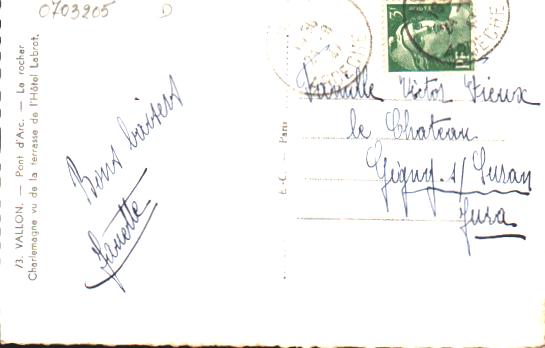 0703205
D
73. VALLON. — Pont d'Arc. — Le rocher
Charlemagne vu de la terrasse de l'Hôtel Labrot.
Bons baisers
Ginette
E.-C. — Paris
3F
POSTE
RF
ARDECHE
ARDECHE
Famille Victor Vieux
le Chateau
Gigny s/ Suran
Jura